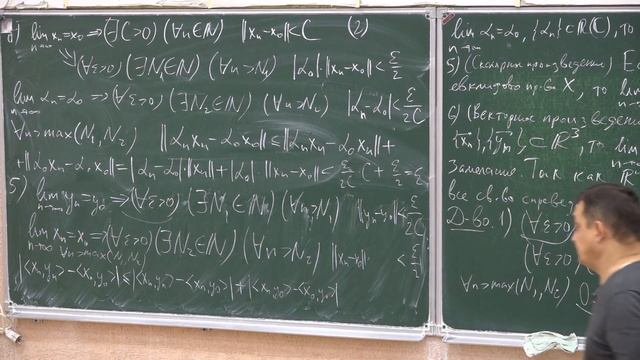 lim xₙ = x₀ ⇒ (∃C>0) (∀n∈ℕ) ‖xₙ-x₀‖<C (2)
n→∞
(∀ε>0) (∃N₁∈ℕ) (∀n>N₁) |α₀|·‖xₙ-x₀‖<ε/2
lim αₙ=α₀ ⇒ (∀ε>0) (∃N₂∈ℕ) (∀n>N₂) |αₙ-α₀|<ε/2C
n→∞
∀n>max(N₁,N₂) ‖αₙxₙ-α₀x₀‖≤‖αₙxₙ-α₀xₙ‖+
+‖α₀xₙ-α₀x₀‖=|αₙ-α₀|·‖xₙ‖+|α₀|·‖xₙ-x₀‖= ε/2C C+ε/2=ε
5) lim yₙ=y₀ ⇒ (∀ε>0) (∃N₁∈ℕ) (∀n>N₁) ‖yₙ-y₀‖<ε/2C
n→∞
lim xₙ=x₀ ⇒ (∀ε>0) (∃N₂∈ℕ) (∀n>N₂) ‖xₙ-x₀‖· <ε/2
n→∞ ∀n>max(N₁,N₂)
|<xₙ,yₙ>-<x₀,y₀>|≤|<xₙ,yₙ>-<xₙ,y₀>|+|<xₙ,y₀>-<x₀,y₀>|
lim αₙ=α₀, {αₙ}⊂ℝ(ℂ), то
n→∞
5) (Скалярное произведение)
евклидово пр-во X, то lim
6) (Векторное произведение)
{xₙ},{yₙ}⊂ℝ³, то lim
Замечание. Так как
все св-во
Д-во. 1) (∀ε>0)
(∀ε>0)
∀n>max(N₁,N₂)